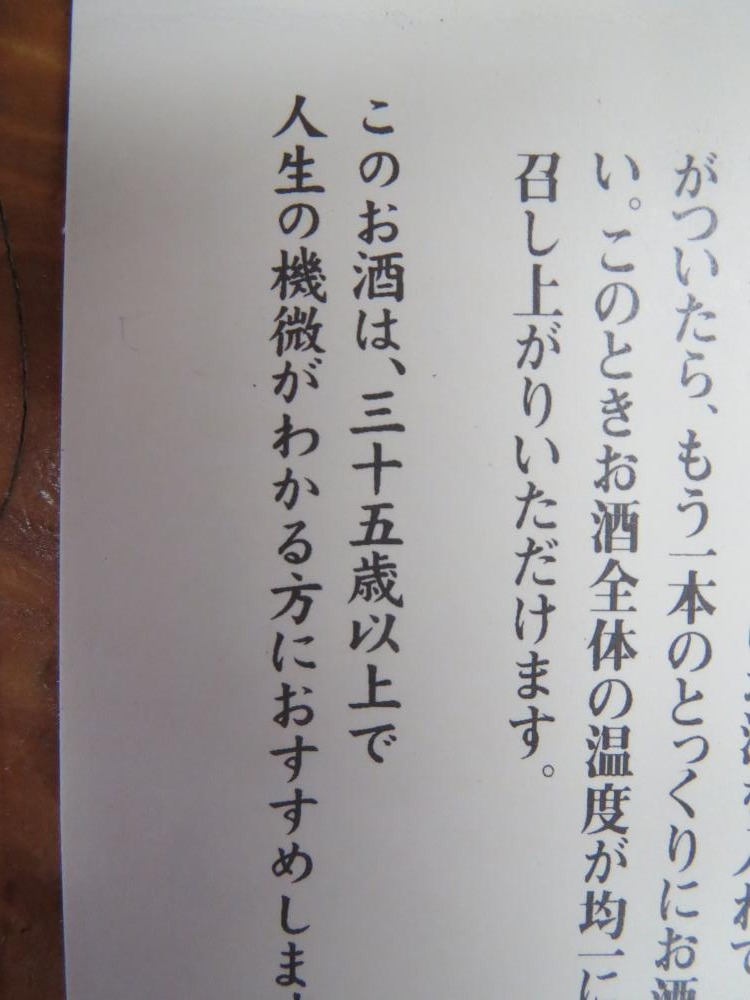 がついたら、もう一本のとっくりにお酒
い。このときお酒全体の温度が均一に
召し上がりいただけます。
このお酒は、三十五歳以上で
人生の機微がわかる方におすすめしま